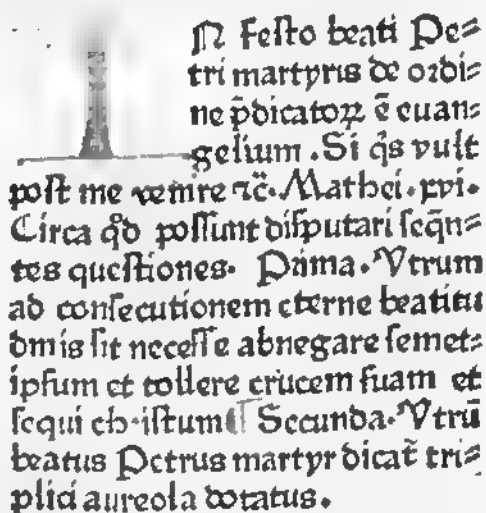 IN Festo beati Pe⸗
tri martyris de ordi⸗
ne p̄dicatoꝝ ē euan⸗
gelium. Si q̄s vult
post me venire ⁊c̄. Mathei. xvi.
Circa qḋ possunt disputari seq̄n⸗
tes questiones. Prima. Vtrum
ad consecutionem eterne beatitu
dinis sit necesse abnegare semet⸗
ipsum et tollere crucem suam et
sequi christum ¶ Secunda. Vtrū
beatus Petrus martyr dicat̄ tri⸗
plici aureola dotatus.